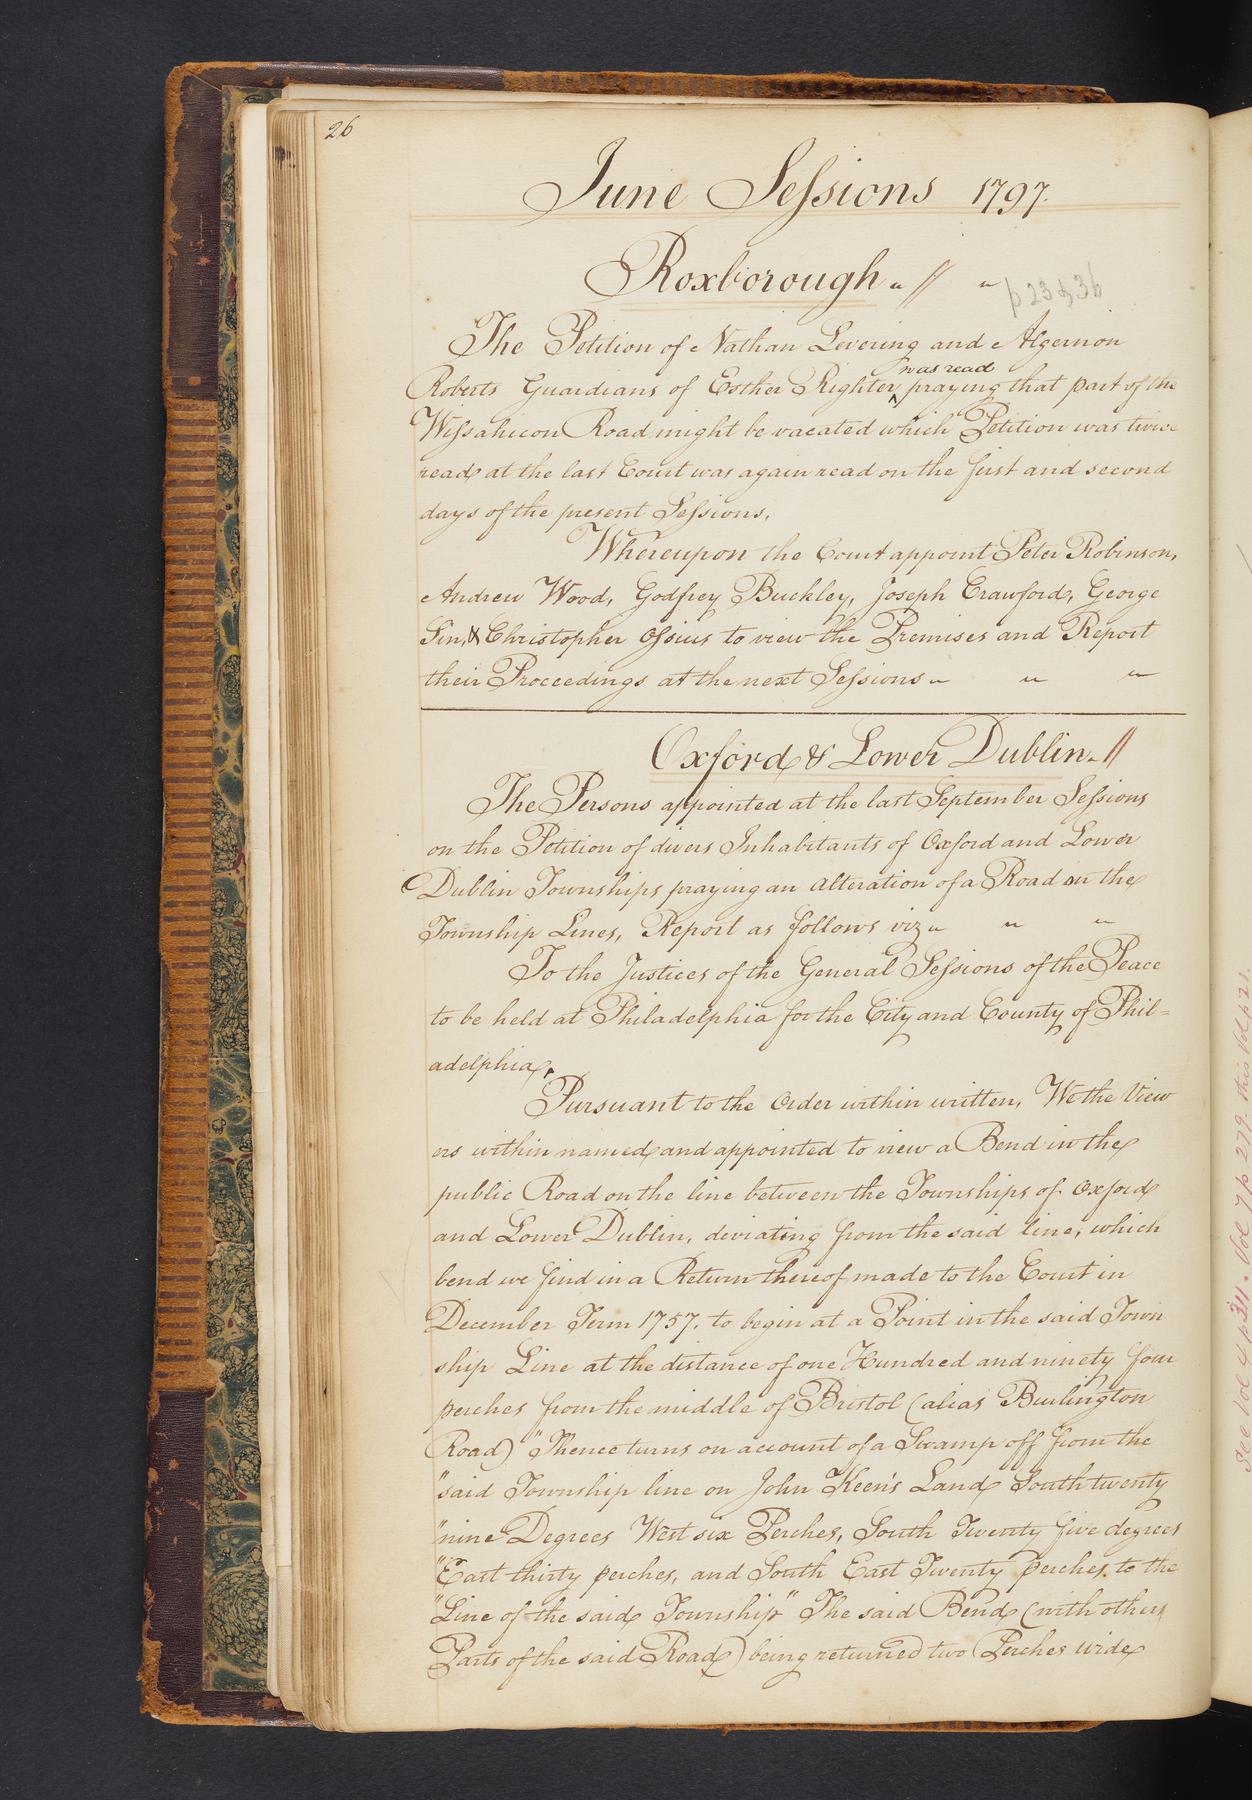 26
June Sessions 1797.
Roxborough " // "
p 23 & 36
The Petition of Nathan Levering and Algernon
was read
Roberts Guardians of Esther Righter ^ praying that part of the
Wissahicon Road might be vacated which Petition was twice
read at the last Court was again read on the first and second
days of the present Sessions.
Whereupon the Court appoint Peter Robinson,
Andrew Wood, Godfrey Buckley, Joseph Crawford, George
Sin, & Christopher Ossius to view the Premises and Report
their Proceedings at the next Sessions " " "
Oxford & Lower Dublin. //
The Persons appointed at the last September Sessions
on the Petition of divers Inhabitants of Oxford and Lower
Dublin Townships praying an alteration of a Road on the
Township Lines, Report as follows viz " " "
To the Justices of the General Sessions of the Peace
to be held at Philadelphia for the City and County of Phil=
adelphia,
Pursuant to the Order within written, We the View
ers within named and appointed to view a Bend in the
public Road on the line between the Townships of Oxford
and Lower Dublin, deviating from the said line, which
bend we find in a Return thereof made to the Court in
December Term 1757, to begin at a Point in the said Town
ship Line at the distance of one Hundred and ninety four
perches from the middle of Bristol (alias Burlington
Road) "Thence turns on account of a Swamp off from the
"said Township line on John Keen's Land South twenty
"nine Degrees West six Perches, South Twenty five degrees
"East thirty perches, and South East Twenty perches to the
"Line of the said Township" The said Bend (with others
Parts of the said Road) being returned two Perches wide
See Vol 4 p 311. Vol 7 p 279. this Vol p 21.